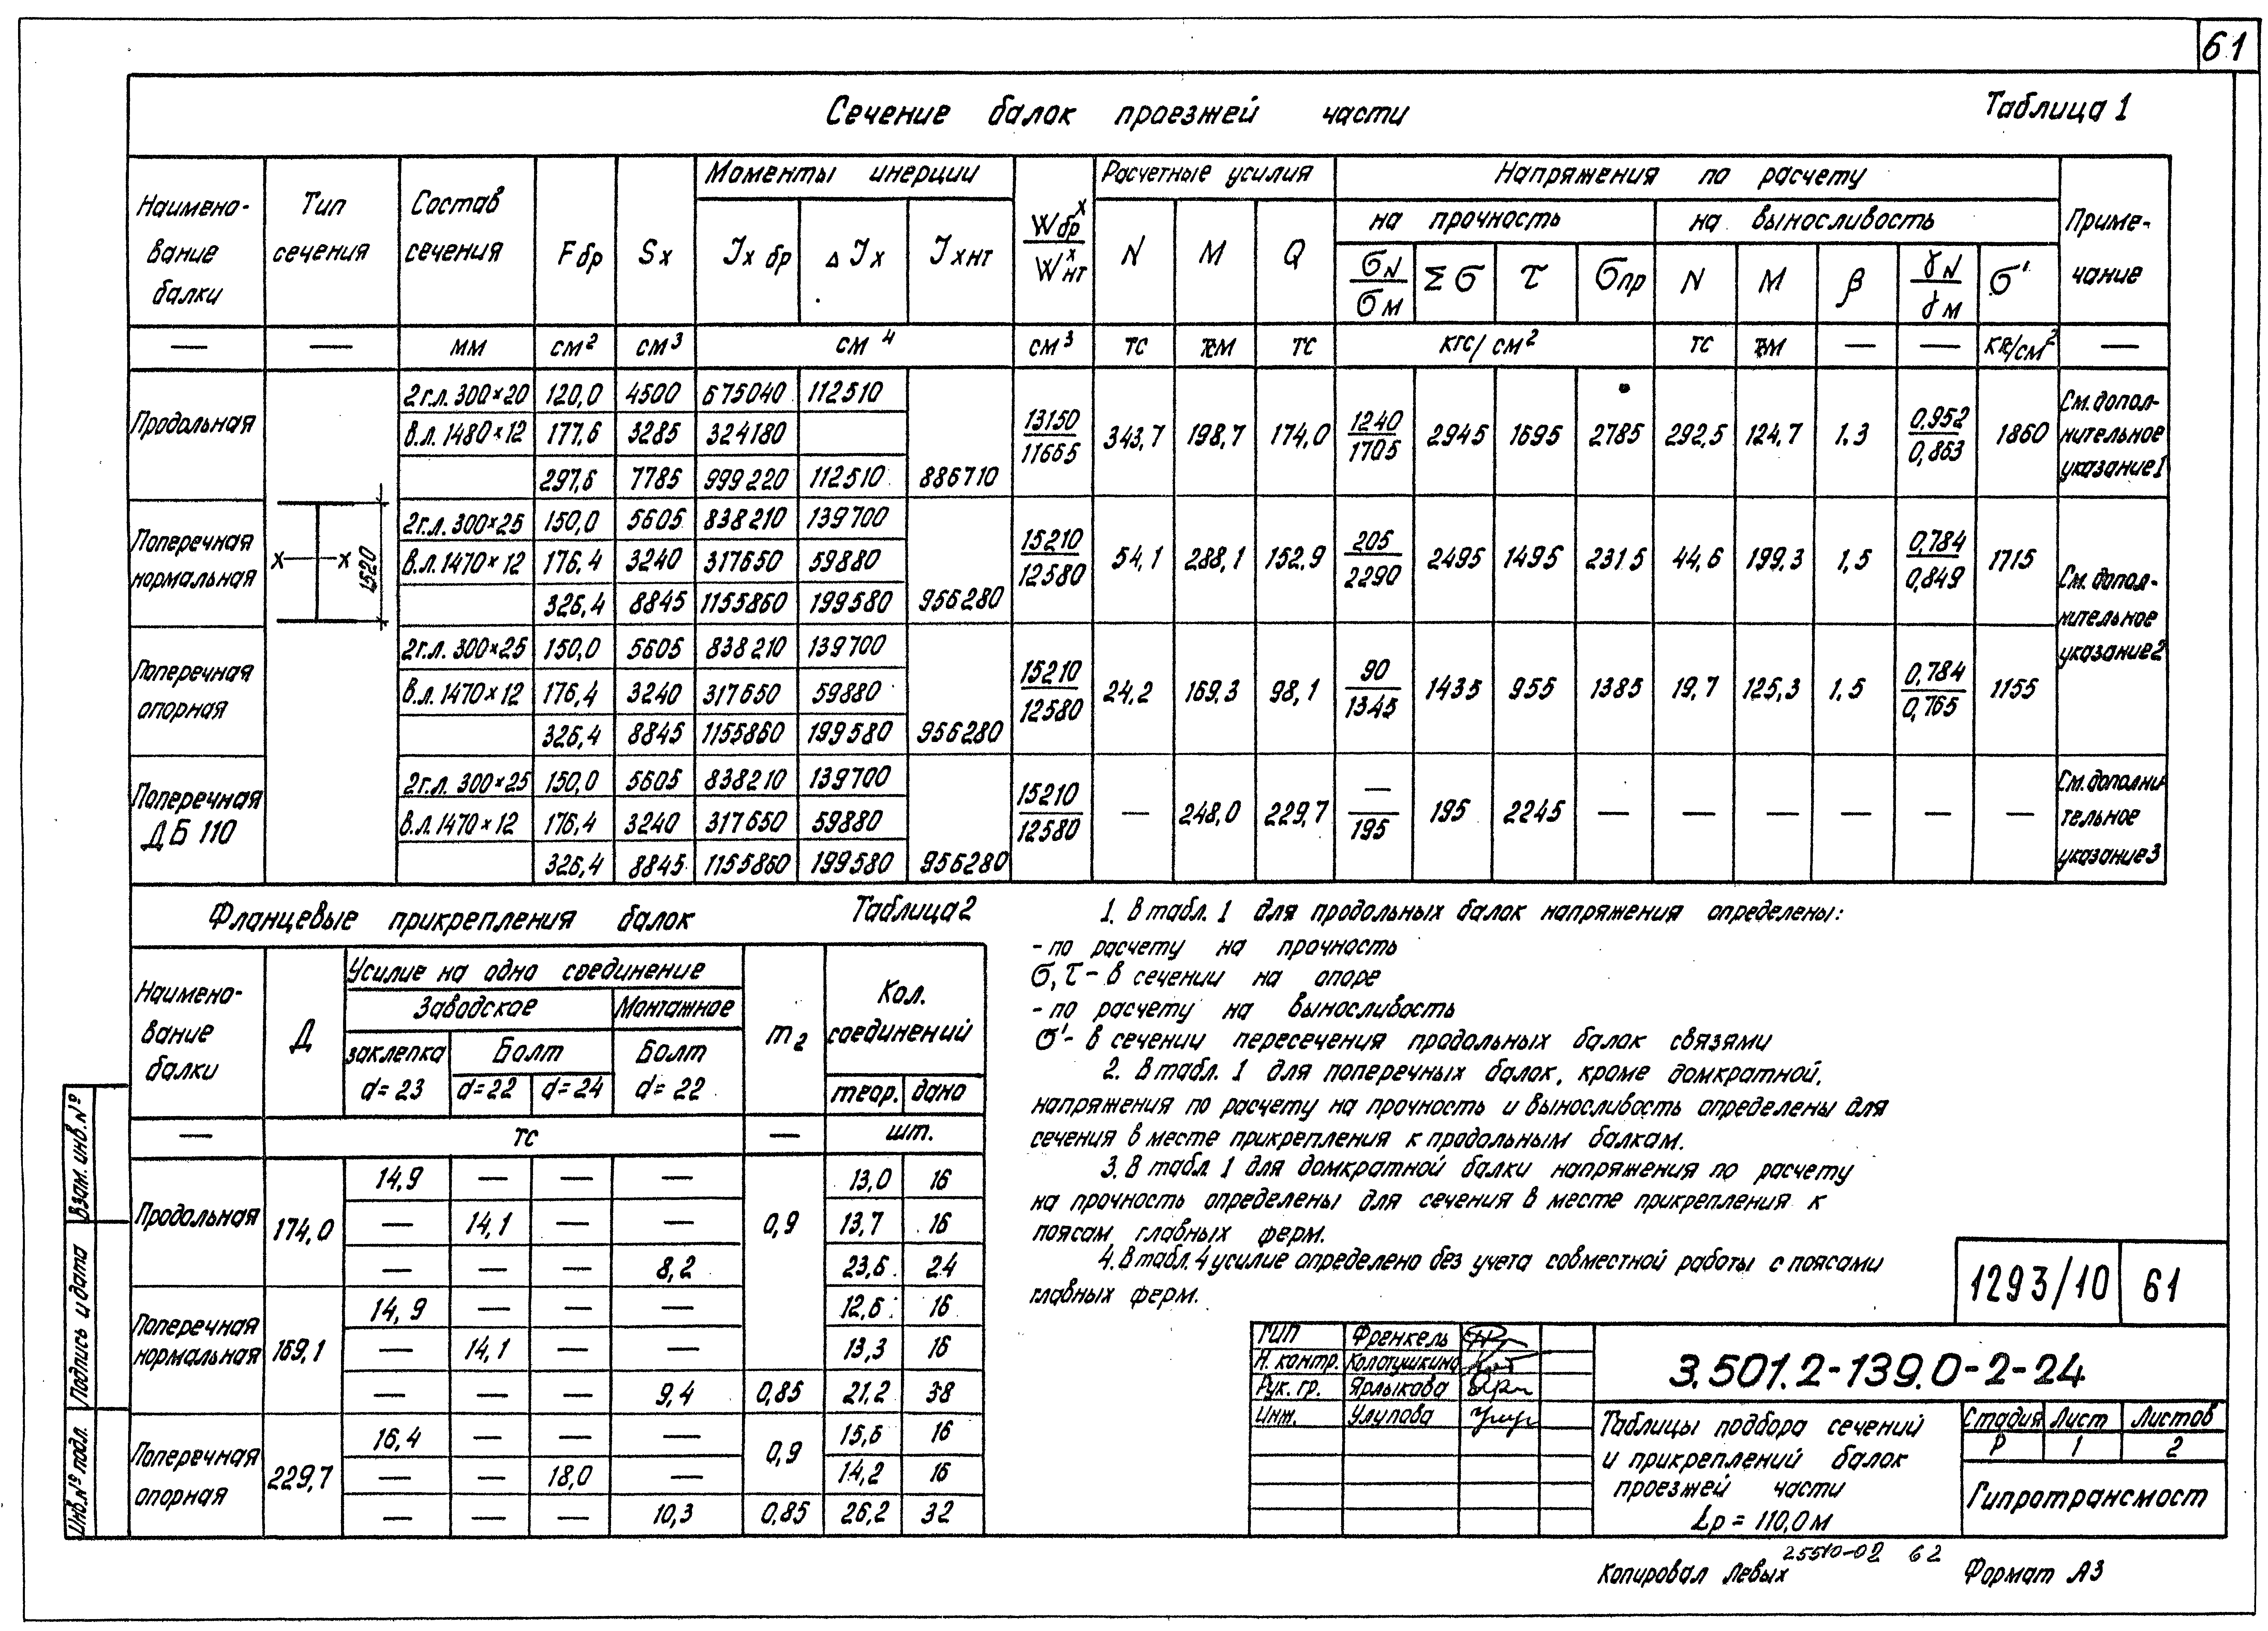 61
Сечение балок проезжей части
Таблица 1
Наимено-вание балки | Тип сечения | Состав сечения | Fбр | Sх | Моменты инерции | Wбрˣ / Wнтˣ | Расчетные усилия | Напряжения по расчету | Приме-чание
Jх бр | ΔJх | Jхнт | N | M | Q | на прочность | на выносливость
σN / σM | Σσ | τ | σпр | N | M | β | γN / γM | σ'
— | — | мм | см² | см³ | см⁴ | см³ | тс | тсм | тс | кгс/см² | тс | тсм | — | — | кгс/см² | —
Продольная | 2г.л. 300×20 | 120,0 | 4500 | 675040 | 112510
в.л. 1480×12 | 177,6 | 3285 | 324180 | 13150 / 11665 | 343,7 | 198,7 | 174,0 | 1240 / 1705 | 2945 | 1695 | 2785 | 292,5 | 124,7 | 1,3 | 0,952 / 0,863 | 1860 | См. допол-нительное указание 1
297,6 | 7785 | 999220 | 112510 | 886710
х — х 1520
Поперечная нормальная | 2г.л. 300×25 | 150,0 | 5605 | 838210 | 139700
в.л. 1470×12 | 176,4 | 3240 | 317650 | 59880 | 15210 / 12580 | 54,1 | 288,1 | 152,9 | 205 / 2290 | 2495 | 1495 | 2315 | 44,6 | 199,3 | 1,5 | 0,784 / 0,849 | 1715 | См. допол-нительное указание 2
326,4 | 8845 | 1155860 | 199580 | 956280
Поперечная опорная | 2г.л. 300×25 | 150,0 | 5605 | 838210 | 139700
в.л. 1470×12 | 176,4 | 3240 | 317650 | 59880 | 15210 / 12580 | 24,2 | 169,3 | 98,1 | 90 / 1345 | 1435 | 955 | 1385 | 19,7 | 125,3 | 1,5 | 0,784 / 0,765 | 1155
326,4 | 8845 | 1155860 | 199580 | 956280
Поперечная ДБ 110 | 2г.л. 300×25 | 150,0 | 5605 | 838210 | 139700
в.л. 1470×12 | 176,4 | 3240 | 317650 | 59880 | 15210 / 12580 | — | 248,0 | 229,7 | — / 195 | 195 | 2245 | — | — | — | — | — | — | См. дополни-тельное указание 3
326,4 | 8845 | 1155860 | 199580 | 956280
Фланцевые прикрепления балок
Таблица 2
Наимено-вание балки | Д | Усилие на одно соединение | m₂ | Кол. соединений
Заводское | Монтажное
заклепка d=23 | Болт d=22 | d=24 | Болт d=22 | теор. | дано
— | тс | — | шт.
Продольная | 174,0 | 14,9 | — | — | — | 0,9 | 13,0 | 16
— | 14,1 | — | — | 13,7 | 16
— | — | — | 8,2 | 23,6 | 24
Поперечная нормальная | 169,1 | 14,9 | — | — | — | 12,6 | 16
— | 14,1 | — | — | 13,3 | 16
— | — | — | 9,4 | 0,85 | 21,2 | 38
Поперечная опорная | 229,7 | 16,4 | — | — | — | 0,9 | 15,6 | 16
— | — | 18,0 | — | 14,2 | 16
— | — | — | 10,3 | 0,85 | 26,2 | 32
1. В табл. 1 для продольных балок напряжения определены:
- по расчету на прочность
σ, τ - в сечении на опоре
- по расчету на выносливость
σ' - в сечении пересечения продольных балок связями
2. В табл. 1 для поперечных балок, кроме домкратной,
напряжения по расчету на прочность и выносливость определены для
сечения в месте прикрепления к продольным балкам.
3. В табл. 1 для домкратной балки напряжения по расчету
на прочность определены для сечения в месте прикрепления к
поясам главных ферм.
4. В табл. 4 усилие определено без учета совместной работы с поясами
главных ферм.
1293/10 | 61
ГИП | Френкель
Н. контр. | Колотушкина
Рук. гр. | Ярлыкова
Инж. | Улупова
3.501.2-139.0-2-24
Таблицы подбора сечений
и прикреплений балок
проезжей части
Lр = 110,0 м
Стадия | Лист | Листов
Р | 1 | 2
Гипротрансмост
25510-02 62
Копировал Левых
Формат А3
Взам. инв. №
Подпись и дата
Инв. № подл.